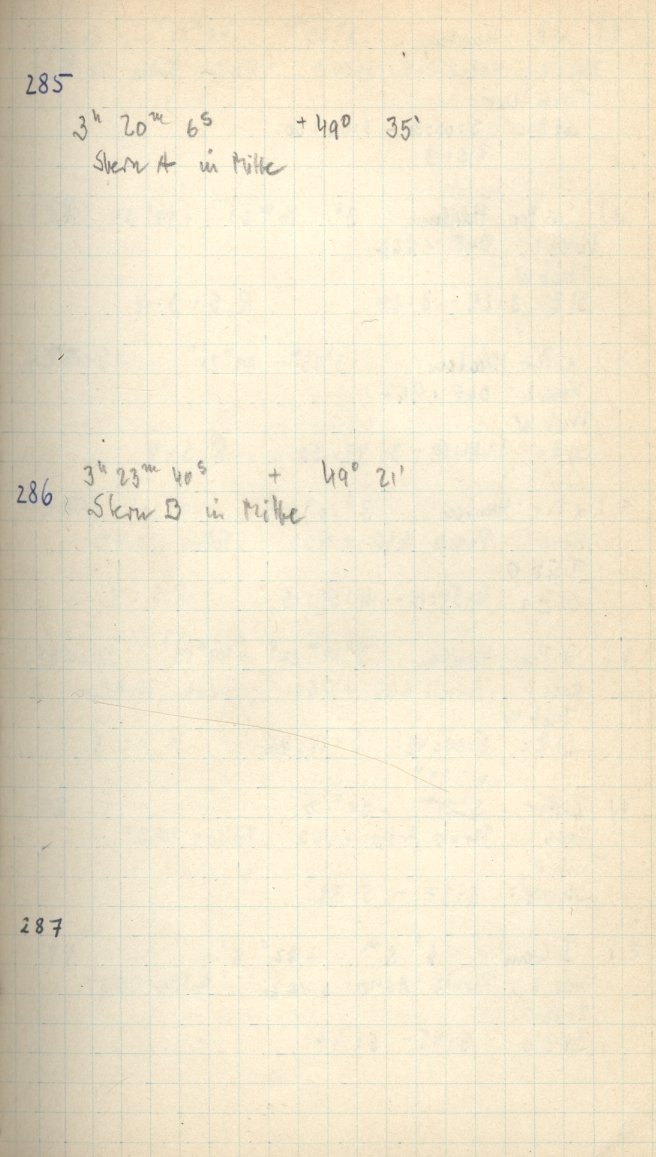 285
3h 20m 6s +49° 35'
Stern A in Mitte
3h 23m 40s + 49° 21'
286
Stern B in Mitte
287